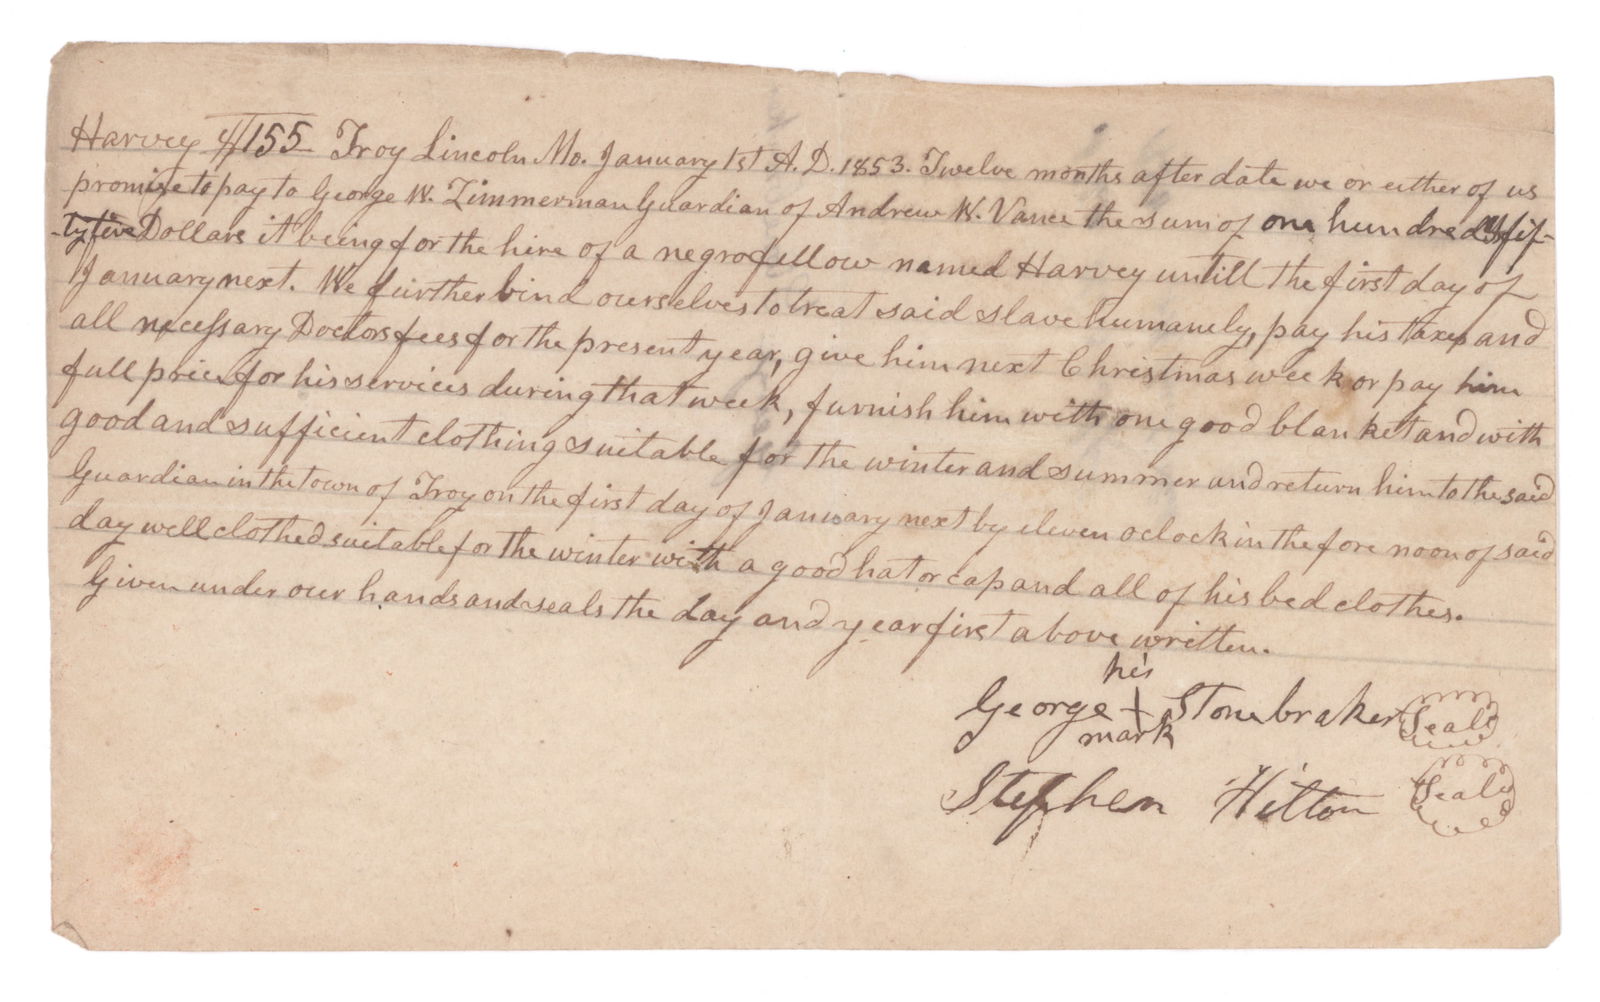 Harvey $155 Troy Lincoln Mo. January 1st A.D. 1853. Twelve months after date we or either of us
promise to pay to George W. Zimmerman Guardian of Andrew W. Vance the sum of one hundred & fif-
-ty five Dollars it being for the hire of a negro fellow named Harvey untill the first day of
January next. We further bind ourselves to treat said slave humanely, pay his taxes and
all necessary Doctors fees for the present year, give him next Christmas week or pay him
full price for his services during that week, furnish him with one good blanket and with
good and sufficient clothing suitable for the winter and summer and return him to the said
Guardian in the town of Troy on the first day of January next by eleven oclock in the fore noon of said
day well clothed suitable for the winter with a good hat or cap and all of his bed clothes.
Given under our hands and seals the day and year first above written.
his
George + Stonebraker Seal
mark
Stephen Hilton Seal